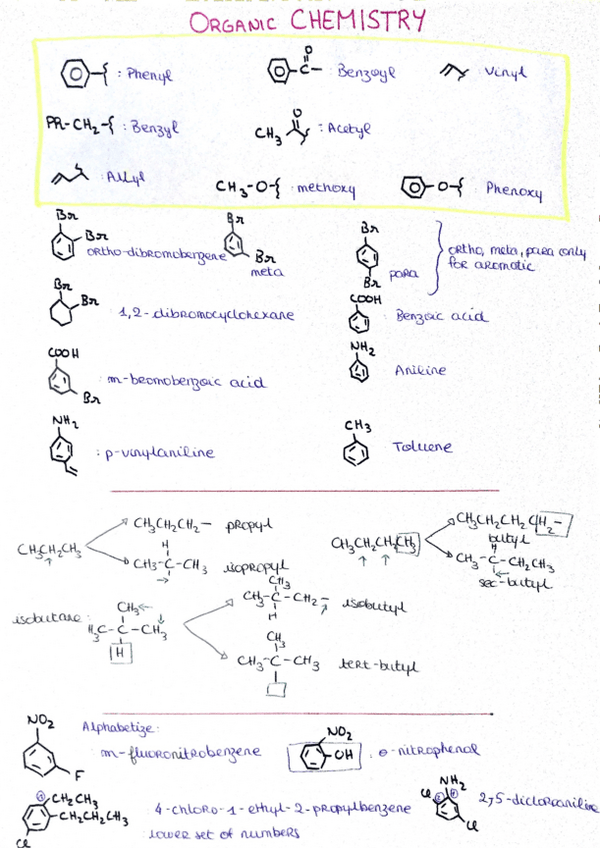 ORGANIC CHEMISTRY
: Phenyl
O
C
: Benzoyl
: Vinyl
PR-CH2- : Benzyl
O
CH3
: Acetyl
: Allyl
CH3-O- : methoxy
-O- : Phenoxy
Br
Br
ortho-dibromobenzene
Br
Br
meta
Br
Br
para
ortho, meta, para only
for aromatic
Br
Br
1,2-dibromocyclohexane
COOH
: Benzoic acid
COOH
Br
: m-beomobenzoic acid
NH2
Aniline
NH2
: p-vinylaniline
CH3
Toluene
CH3CH2CH3
CH3CH2CH2- propyl
H
CH3-C-CH3 isopropyl
CH3CH2CH2CH3
CH3CH2CH2CH2-
butyl
H
CH3-C-CH2CH3
sec-butyl
isobutane:
CH3
H3C-C-CH3
H
CH3
CH3-C-CH2- isobutyl
H
CH3
CH3-C-CH3 tert-butyl
NO2
F
Alphabetize:
: m-fluoronitrobenzene
NO2
OH
: o-nitrophenol
CH2CH3
CH2CH2CH3
Cl
4-chloro-1-ethyl-2-propylbenzene
lower set of numbers
NH2
Cl
Cl
2,5-dicloroaniline